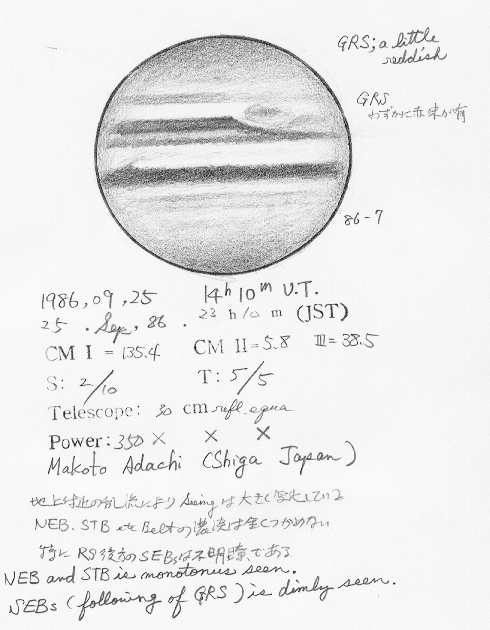 GRS; a little
reddish
GRS
わずかに赤味が有
86-7
1986, 09, 25 14h 10m U.T.
25 . Sep, 86 . 23 h 10 m (JST)
CM I = 135.4 CM II = 5.8 III = 38.5
S: 2/10 T: 5/5
Telescope: 30 cm refl. equa
Power: 350 × × ×
Makoto Adachi (Shiga Japan)
地上付近の乱流により Seeing は大きく変化している
NEB. STB etc Beltの濃淡は全くつかめない
特に RS後方のSEBsは不明瞭である
NEB and STB is monotonus seen.
SEBs (following of GRS) is dimly seen.